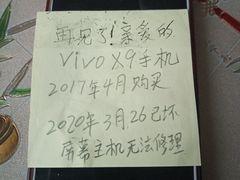 再见了!亲爱的
vivo X9手机
2017年4月购买
2020年3月26已坏
屏幕主机无法修理